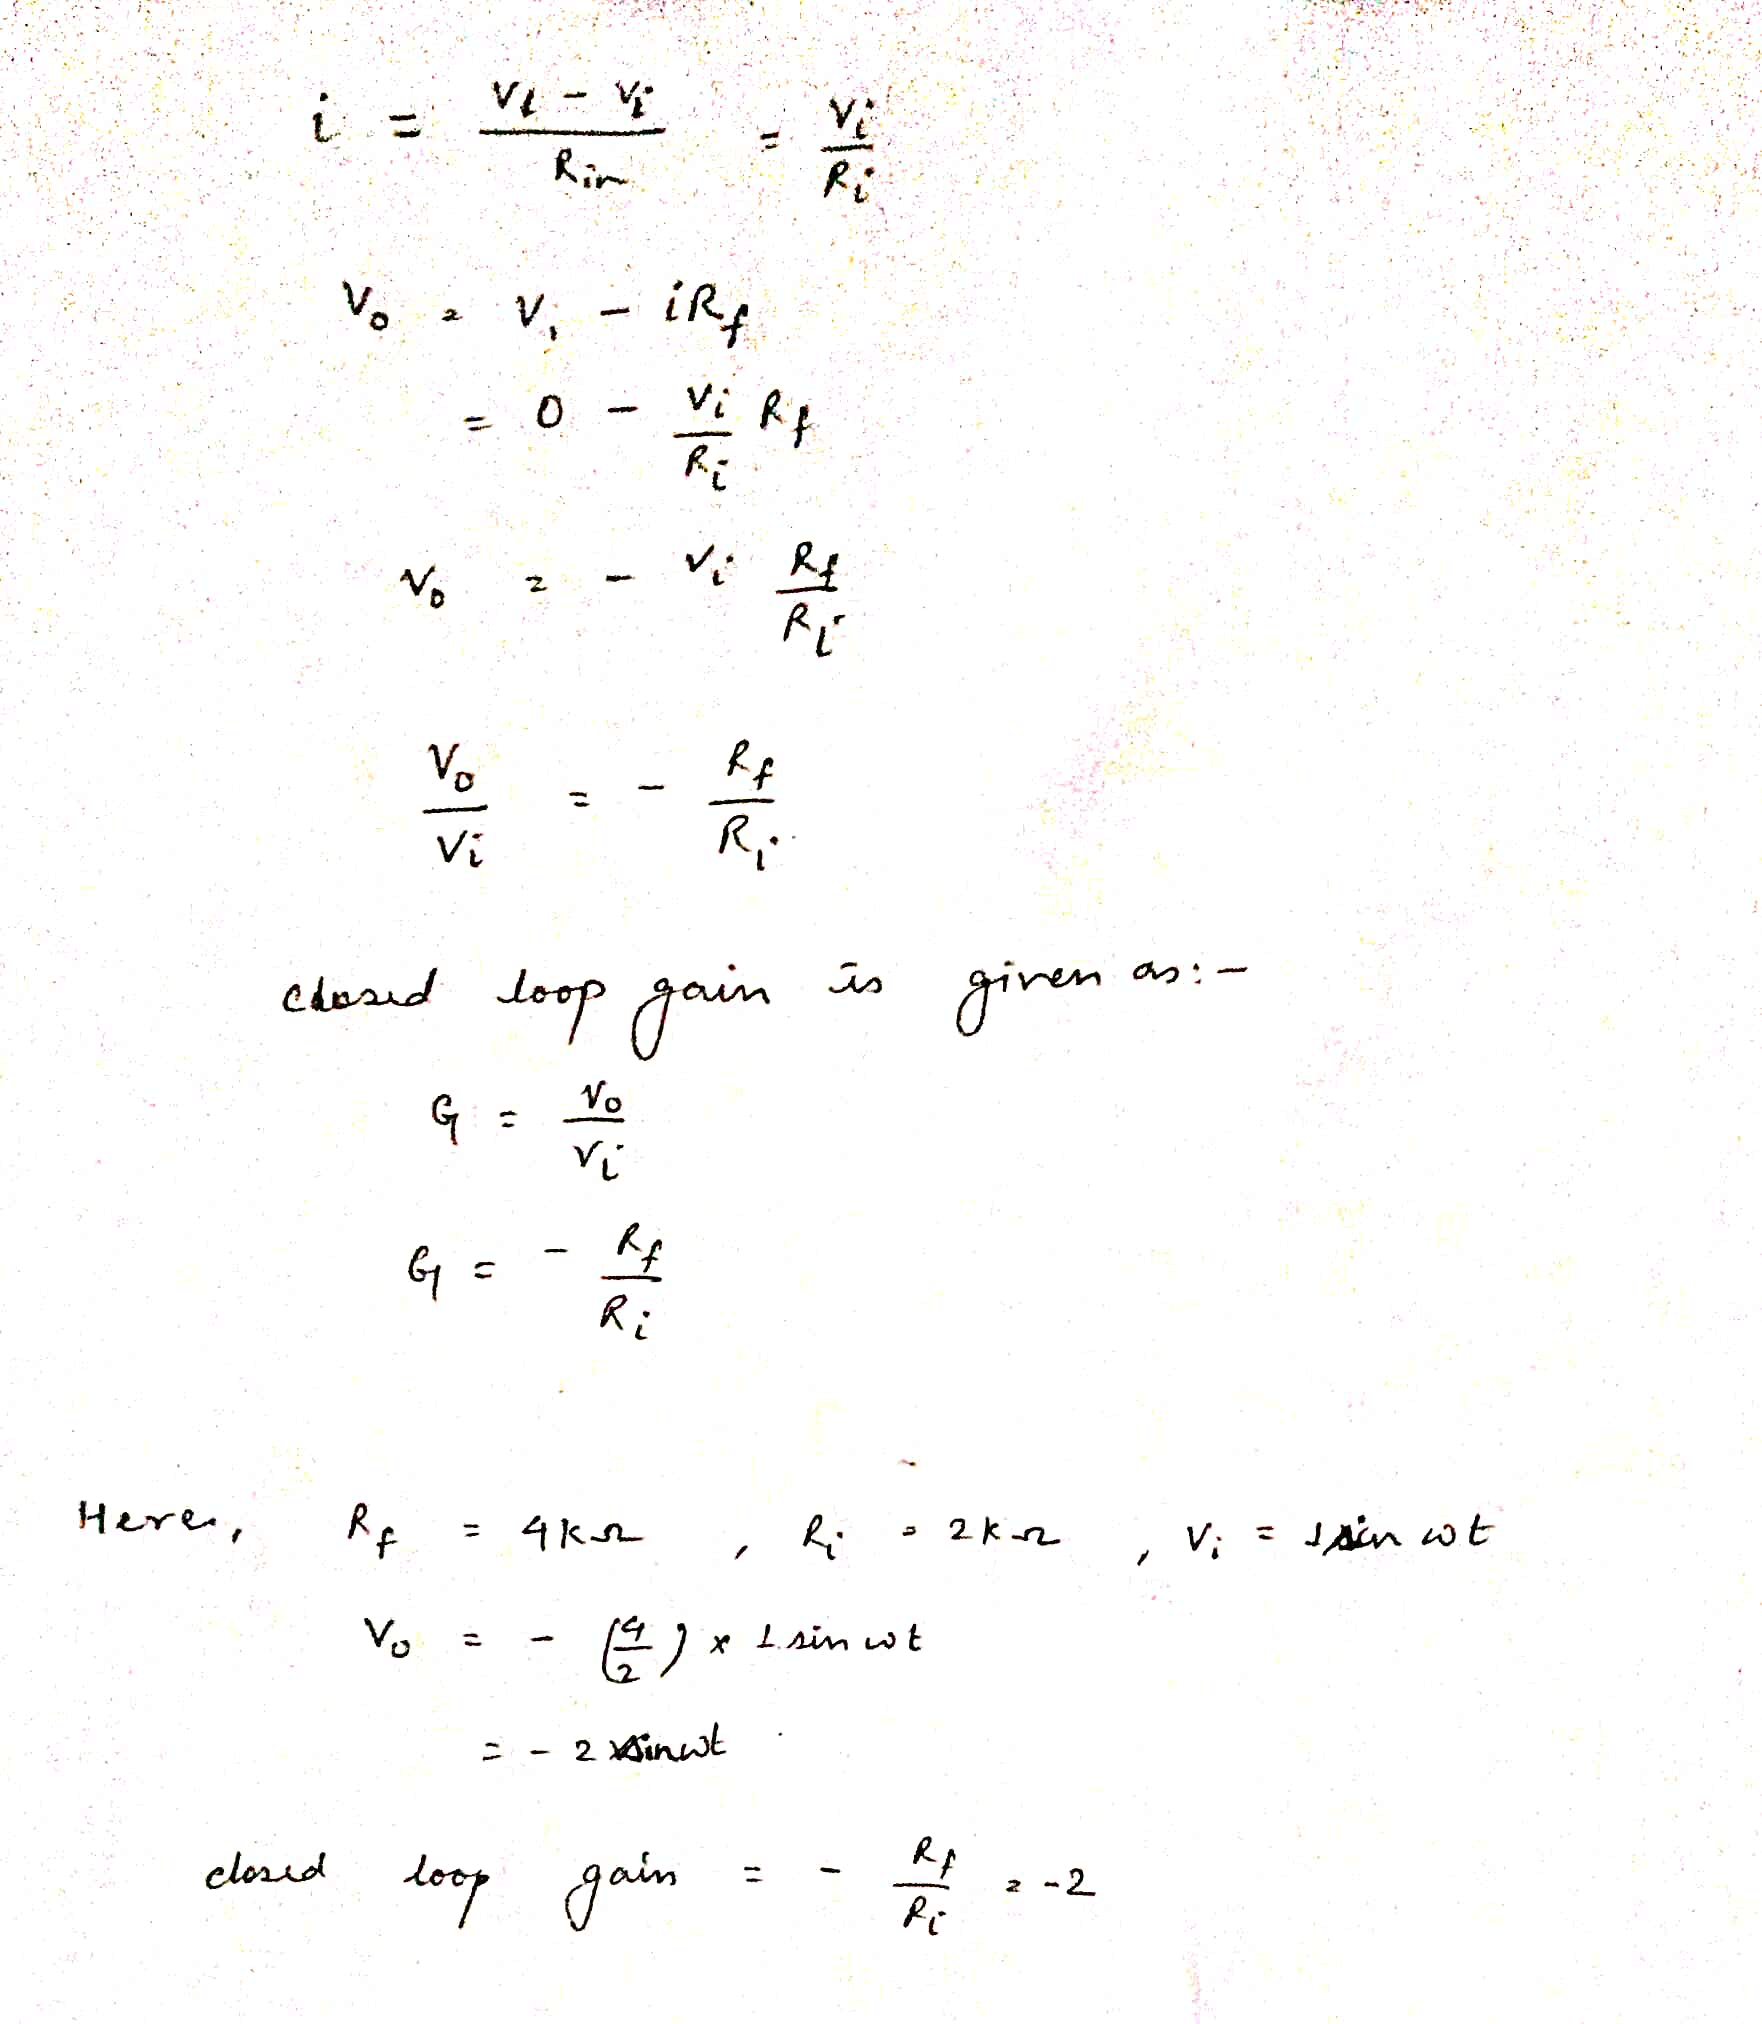 i = (Vi - Vi) / Rin = Vi / Ri
Vo = V1 - iRf
= 0 - Vi/Ri Rf
Vo = - Vi Rf/Ri
Vo/Vi = - Rf/Ri
closed loop gain is given as:-
G = Vo/Vi
G = - Rf/Ri
Here, Rf = 4kΩ , Ri = 2kΩ , Vi = 1 sin ωt
Vo = - (4/2) x 1 sin ωt
= - 2 sin ωt
closed loop gain = - Rf/Ri = -2